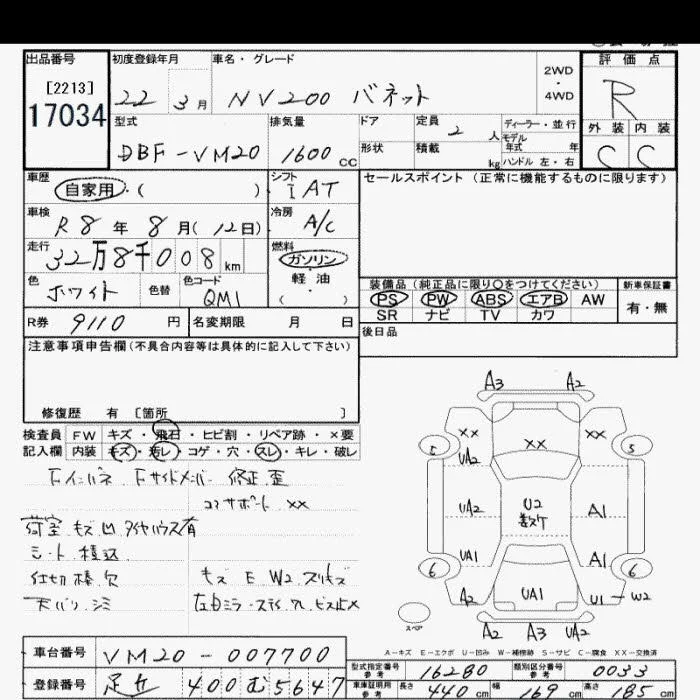 出品番号 初度登録年月 車名・グレード 評価点
[2213] 2WD・4WD
17034 22 3月 NV200 バネット R
型式 排気量 ドア 定員 2人 ディーラー・並行
モデル年式 年
外装 内装
DBF-VM20 1600cc 形状 積載 kg ハンドル 左・右 C C
車歴 自家用・( ) シフト IAT セールスポイント(正常に機能するものに限ります)
車検 R8年8月(12日) 冷房 A/C
走行 32万8千008km 燃料 ガソリン
軽油
( )
色 ホワイト 色替 色コード QM1
装備品(純正品に限り○をつけてください) 新車保証書
PS PW ABS エアB AW 有・無
SR ナビ TV カワ
R券 9110円 名変期限 月 日 後日品
注意事項申告欄(不具合内容等は具体的に記入して下さい)
修復歴 有 [箇所 ]
検査員 FW キズ・飛石・ヒビ割・リペア跡・×要
記入欄 内装 キズ・汚レ・コゲ・穴・スレ・キレ・破レ
Fインパネ Fサイドメンバー 修正 歪
コアサポート ××
荷室 キズ 凹 タイヤハウス有
シート 積込
仕切棒 欠 キズ E W2 スリキズ
天バリ シミ
A3 A2
×× ×× ××
5 UA2 5
UA2 U2 A1
数ケ
UA1 A1
6 6
A2 UA1 U1-W2
スペア
A2 A3 UA2
A-キズ E-エクボ U-凹み W-補修跡 S-サビ C-腐食 XX-交換済
車台番号 VM20-007700
型式指定番号 参考 16280 類別区分番号 参考 0033
登録番号 足立 400 む 5647
車庫証明用 参考 長さ 440cm 幅 169cm 高さ 185cm